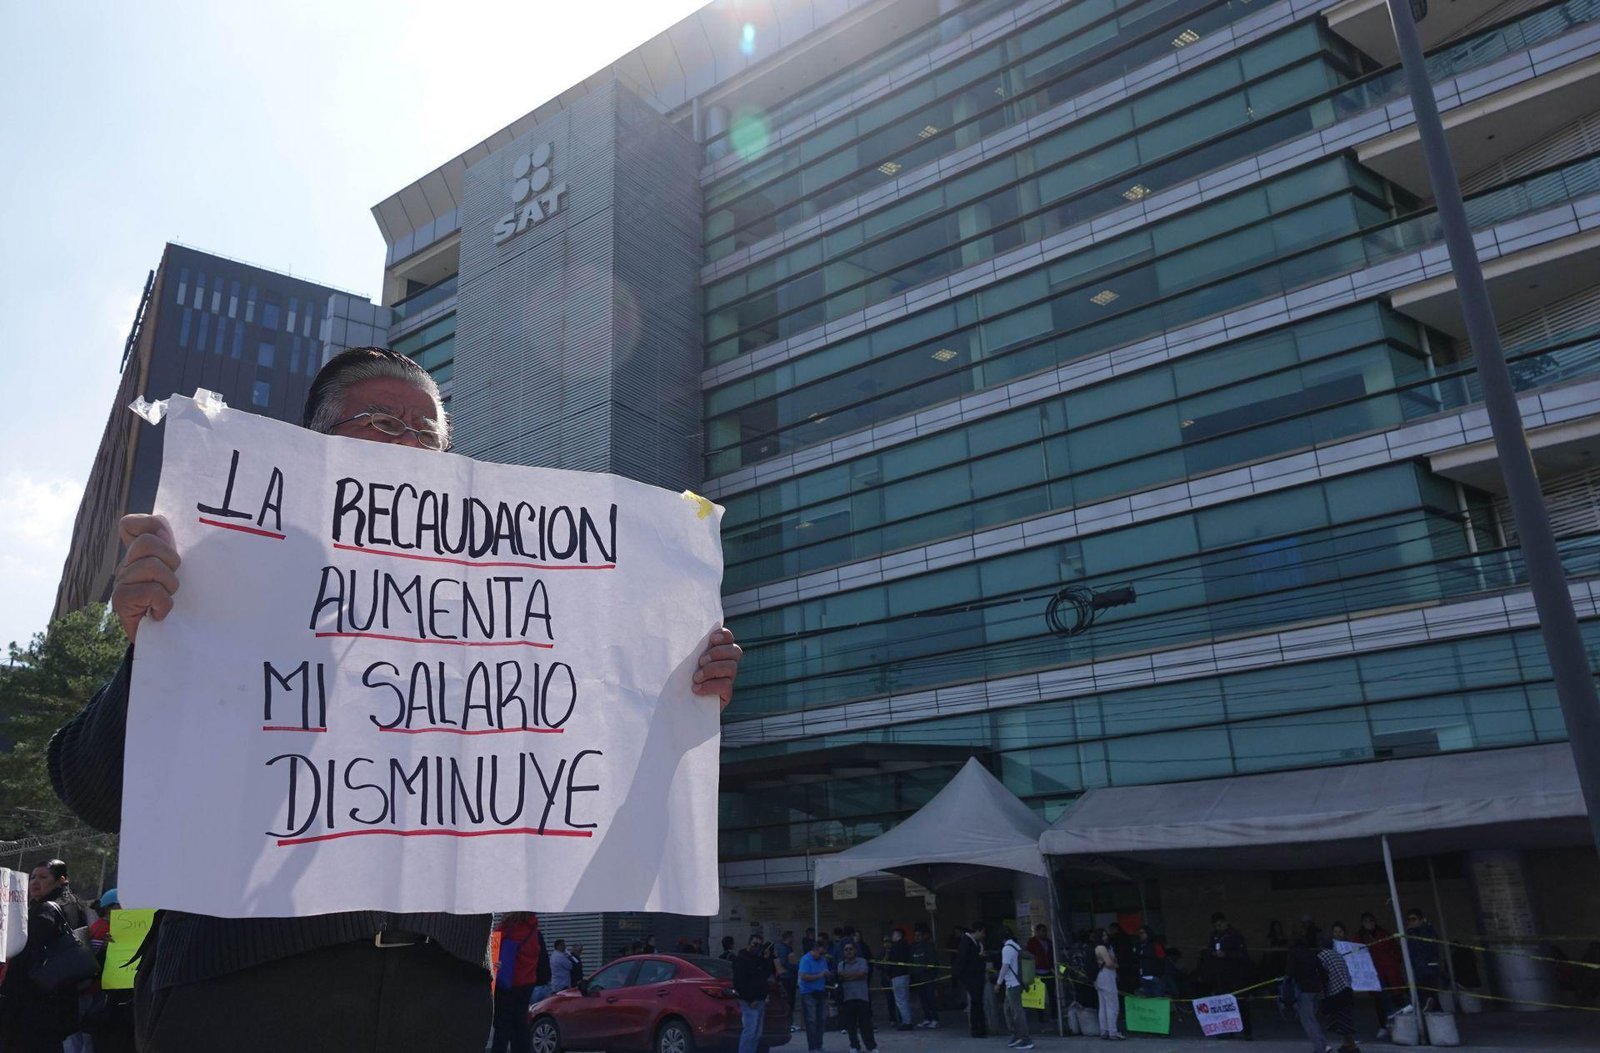 SAT
LA RECAUDACION
AUMENTA
MI SALARIO
DISMINUYE
Sin
NO